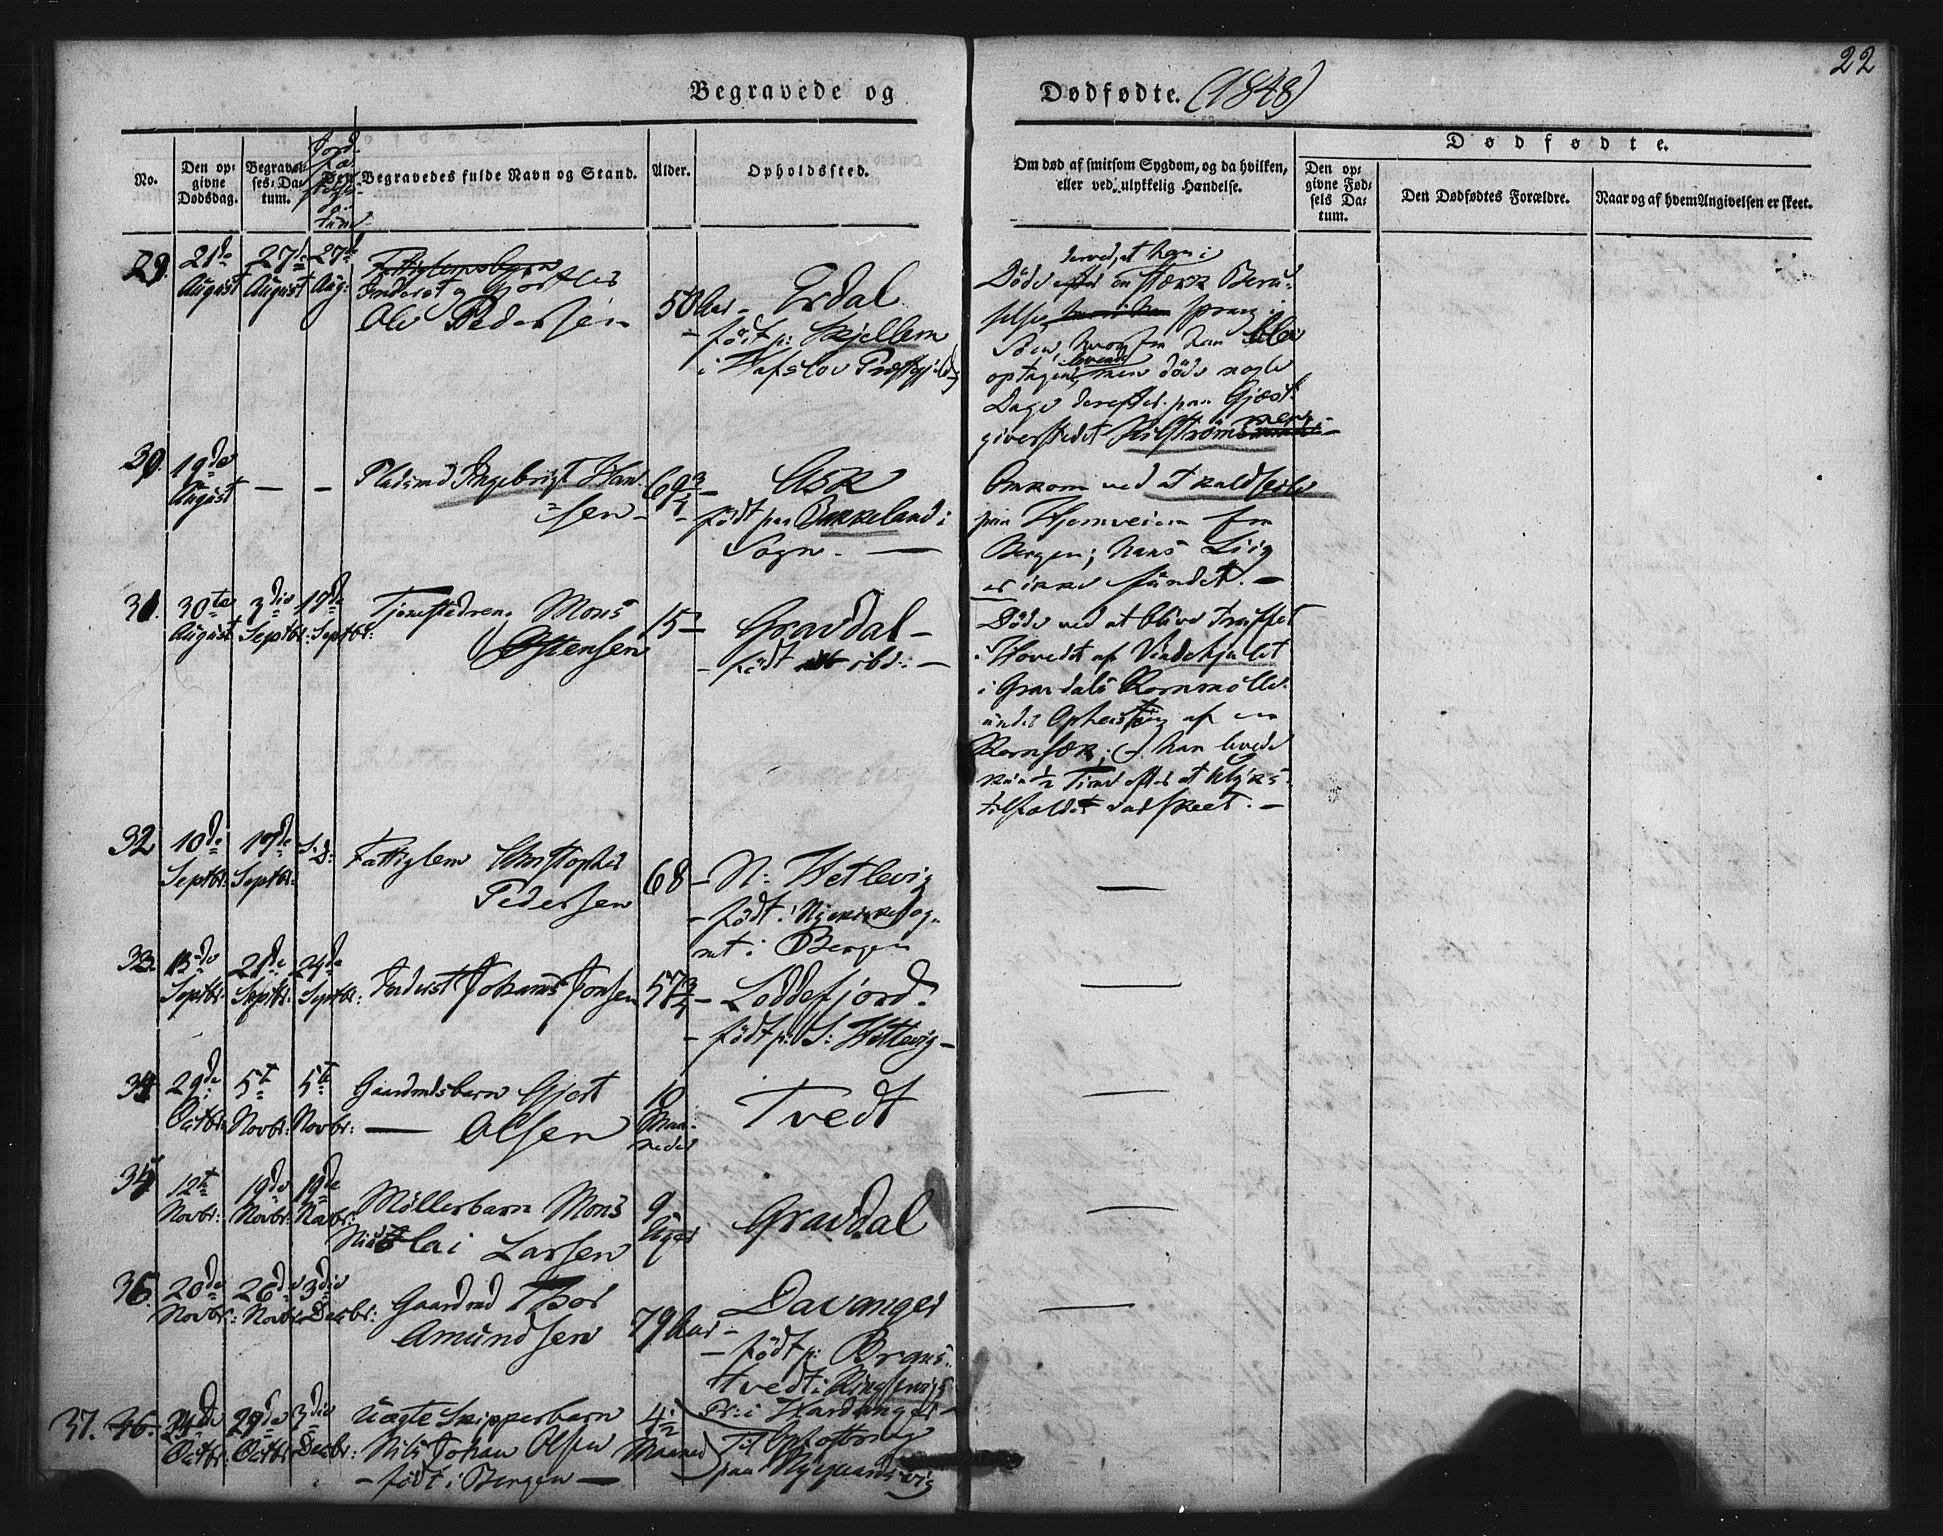 22
Begravede og Dødfødte. (1848)
No.
Den op-
givne
Dødsdag.
Begravel-
ses-Da-
tum.
Jord-
fæ-
stelses-
Da-
tum.
Den Begravedes fulde Navn og Stand.
Alder.
Opholdssted.
Om død af smitsom Sygdom, og da hvilken,
eller ved ulykkelig Hændelse.
Dødfødte.
Den op-
givne Fød-
sels Da-
tum.
Den Dødfødtes Forældre.
Naar og af hvem Angivelsen er skeet.
29. 21de August 27de August 27de Aug:
Inderst og Gjørtler
Ole Pedersen
50 Aar – Erdal
– født p: Skjellem
i Hafslov Præstegjeld
derved, at han i
Døde en stærk Beru-
selse, sprang i
Søen, hvorfra han blev
optagen levende, men døde nogle
Dage derefter paa Gjæst-
giverstedet
30. 19de August – –
Pladsmd Engebrigt Han-
sen –
69 3/4 – Ask
– født paa Bakkeland i
Sogn. –
Omkom ved at kaldseile
paa Hjemveien fra
Bergen; hans Liig
er ikke fundet. –
31. 30te August 3die Septbr: 17de Septbr:
Tjenestedreng Mons
Østensen
15 – Gravdal –
– født ibd: –
Døde ved at blive truffet
i Hovedet af Vindehjulet
i Gravdals Kornmølle
under Opheisning af en
Kornsæk; – han levede
kun 1/2 Time efter at Ulyks-
tilfældet var skeet. –
32 10de Septbr: 17de Septbr: S: D:
Fattiglem Christopher
Pedersen
68 – N: Hetlevig
– født i Nykirkesog-
net i Bergen
—
33. 13de Septbr: 21de Septbr: 24de Septbr:
Inderst Johannes Jonsen
57 3/4 – Loddefjord.
– født p: S: Hetlevig –
—
34 29de Octbr: 5te Novbr: 5te Novbr:
Gaardmdsbarn Gjert
— Olsen
10
Maa-
neder
Tvedt
—
35 12te Novbr: 19de Novbr: 19de Novbr:
Møllerbarn Mons
Nicolai Larsen
9
Uger
Gravdal
—
36. 20de Novbr: 26de Novbr: 3die Decbr:
Gaardmd Thor
Amundsen
79 Aar – Davanger
– født p: Brans-
tvedt i
Pr: i Hardanger –
—
37. 36. 24de Octbr: 29de Octbr: 3die Decbr:
Uægte Skipperbarn
Nils Johan Olsen
– født i Bergen –
4 1/2
Maaned
Til Opfostring
paa Nygaards-
vig